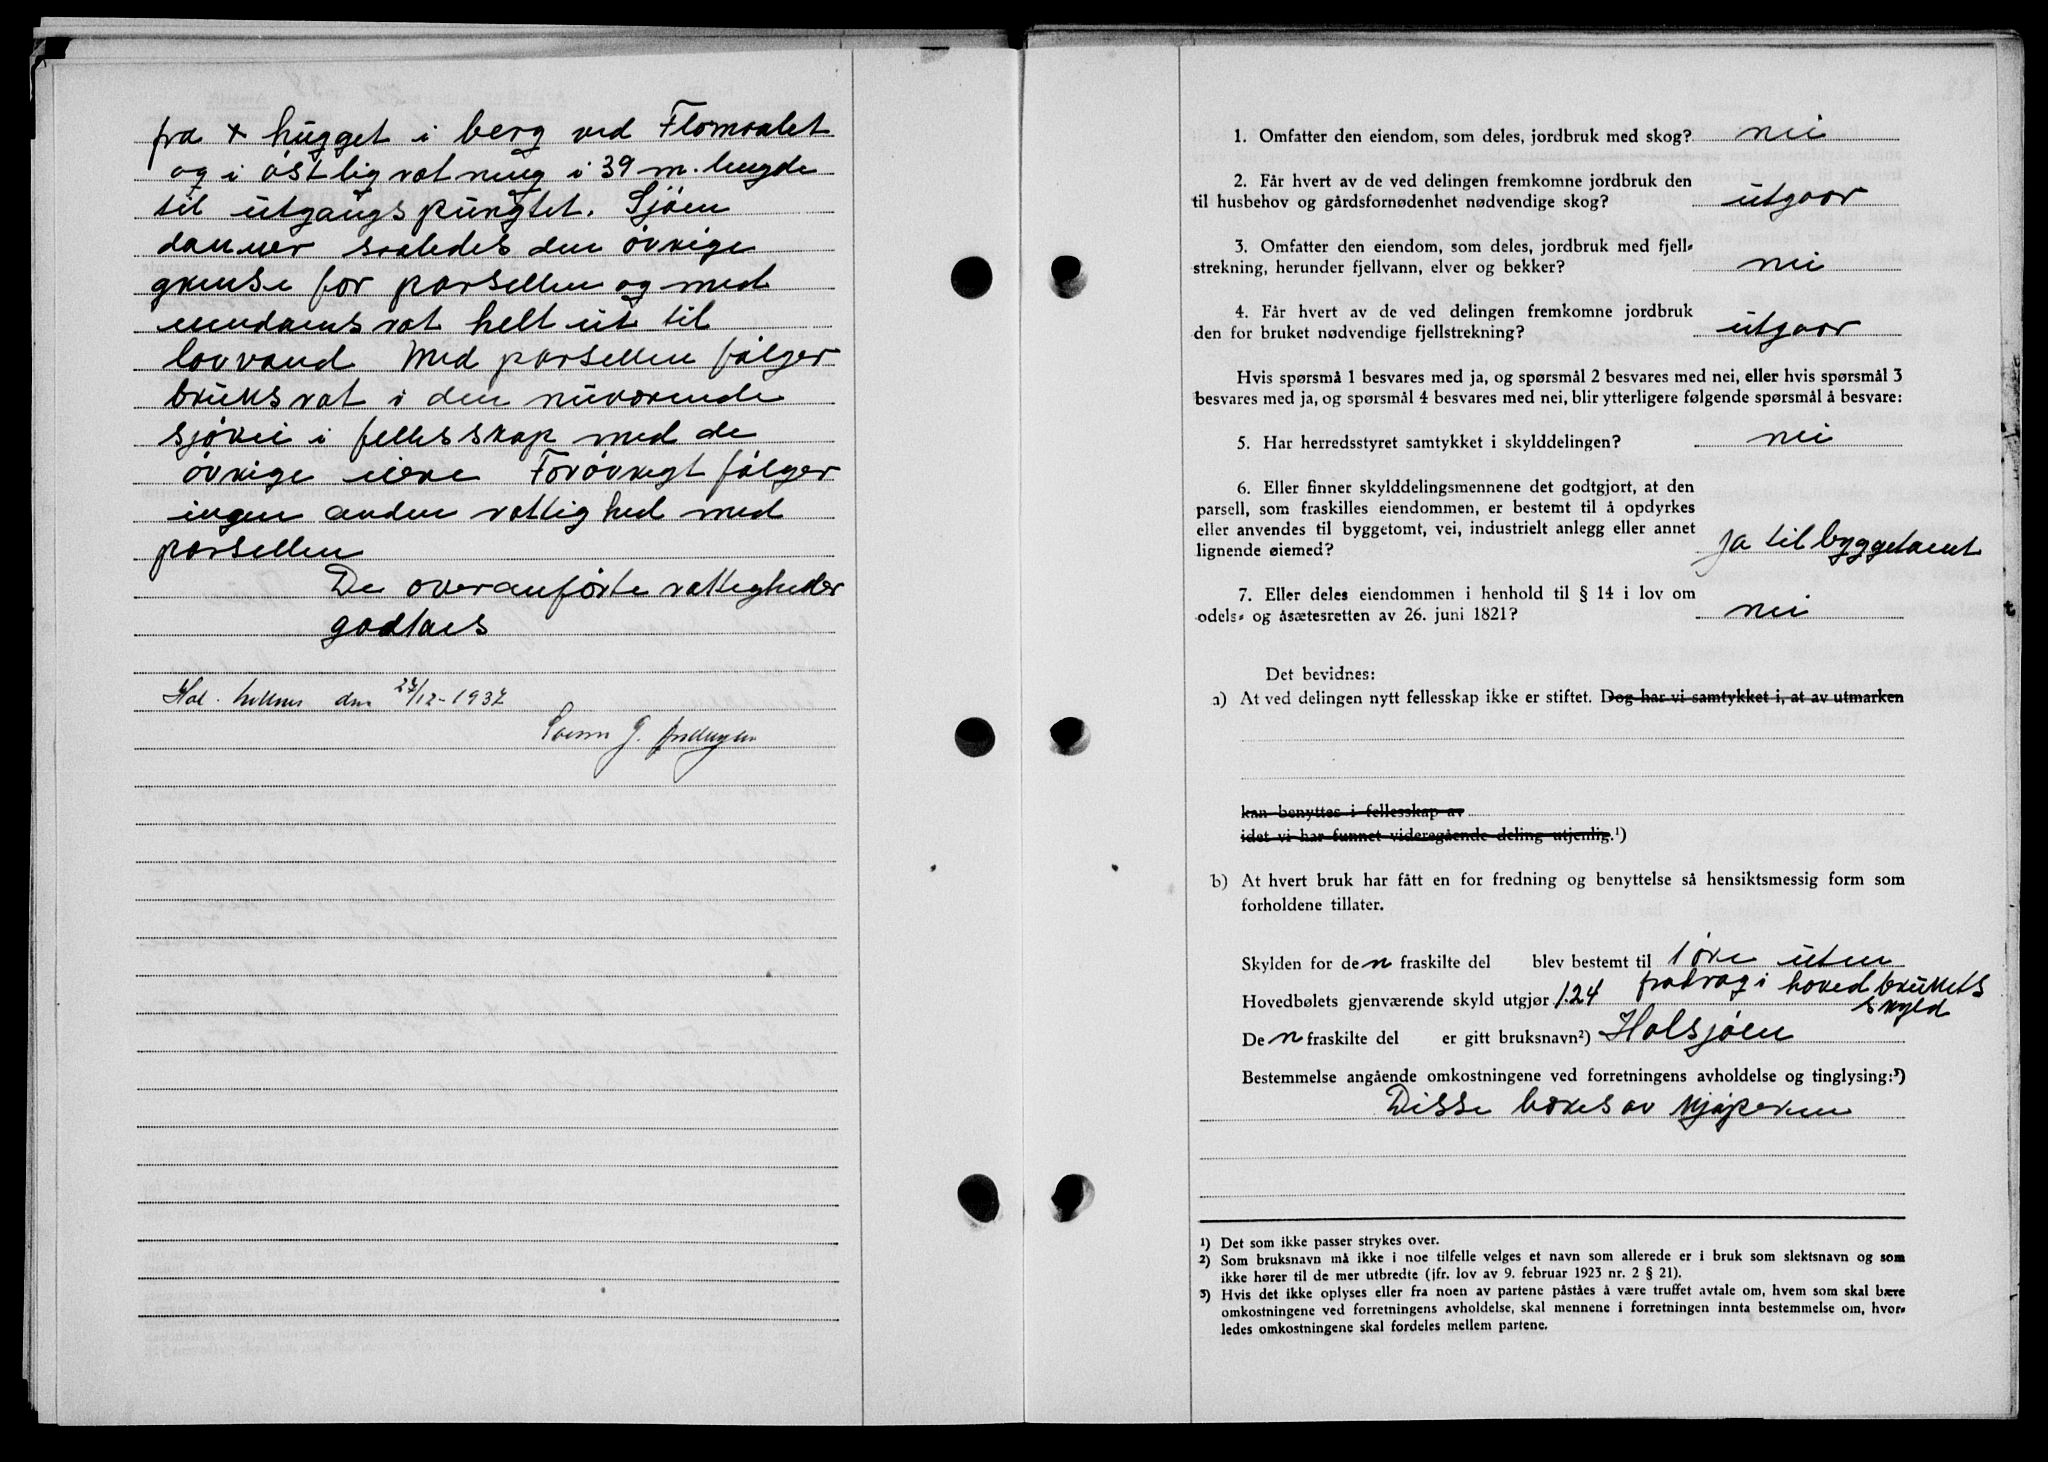 fra + hugget i berg ved Flomaalet
og i östlig ratning i 39 m. lengde
til utgangspungtet. Sjöen
danner saaledes den övrige
grense for parsellen og med
eiendomsrat helt ut til
lovvand Med parsellen fölger
bruksrat i den nuværende
sjövei i fellesskap med de
övrige eiere Forövrigt fölger
ingen anden rattighed med
parsellen
De overanförte rattigheder
godtaes
den 27/12-1937
G.
1. Omfatter den eiendom, som deles, jordbruk med skog? nei
2. Får hvert av de ved delingen fremkomne jordbruk den
til husbehov og gårdsfornødenhet nødvendige skog? utgaar
3. Omfatter den eiendom, som deles, jordbruk med fjell-
strekning, herunder fjellvann, elver og bekker? nei
4. Får hvert av de ved delingen fremkomne jordbruk
den for bruket nødvendige fjellstrekning? utgaar
Hvis spørsmå 1 besvares med ja, og spørsmål 2 besvares med nei, eller hvis spørsmål 3
besvares med ja, og spørsmål 4 besvares med nei, blir ytterligere følgende spørsmål å besvare:
5. Har herredsstyret samtykket i skylddelingen? nei
6. Eller finner skylddelingsmennene det godtgjort, at den
parsell, som fraskilles eiendommen, er bestemt til å opdyrkes
eller anvendes til byggetomt, vei, industrielt anlegg eller annet
lignende øiemed? ja til byggetomt
7. Eller deles eiendommen i henhold til § 14 i lov om
odels- og åsætesretten av 26. juni 1821? nei
Det bevidnes:
a) At ved delingen nytt fellesskap ikke er stiftet. Dog har vi samtykket i, at av utmarken
kan benyttes i fellesskap av
idet vi har funnet videregående deling utjenlig.¹)
b) At hvert bruk har fått en for fredning og benyttelse så hensiktsmessig form som
forholdene tillater.
Skylden for den fraskilte del blev bestemt til 1 öre uten
fradrag i hovedbrukets
skyld
Hovedbølets gjenværende skyld utgjør 1.24
Den fraskilte del er gitt bruksnavn²) Halsjöen
Bestemmelse angående omkostningene ved forretningens avholdelse og tinglysing:³)
Disse bæres av kjöperen
¹) Det som ikke passer strykes over.
²) Som bruksnavn må ikke i noe tilfelle velges et navn som allerede er i bruk som slektsnavn og som
ikke hører til de mer utbredte (jfr. lov av 9. februar 1923 nr. 2 § 21).
³) Hvis det ikke oplyses eller fra noen av partene påståes å være truffet avtale om, hvem som skal bære
omkostningene ved forretningens avholdelse, skal mennene i forretningen innta bestemmelse om, hvor-
ledes omkostningene skal fordeles mellem partene.